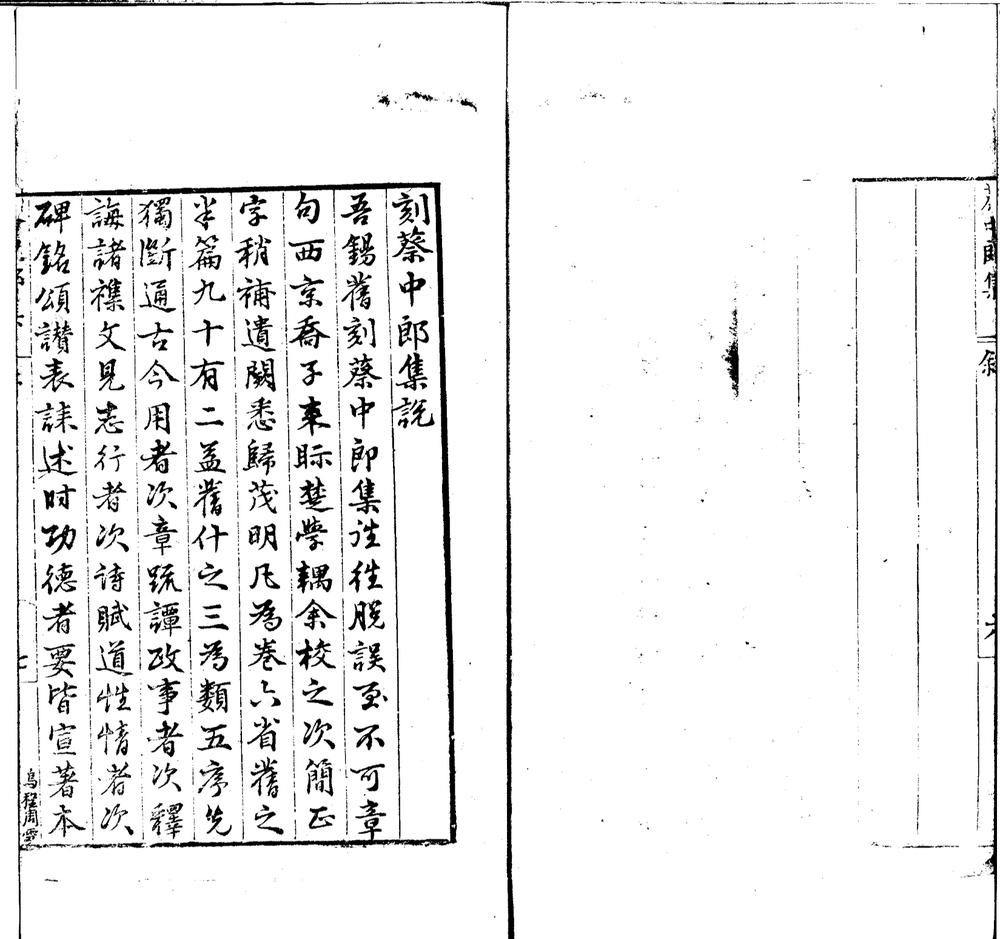 蔡中郎集
叙
刻蔡中郎集說
吾錫舊刻蔡中郎集往往脫誤至不可章
句西京喬子来眎楚學耦余校之次簡正
字稍補遺闕悉歸茂明凡為卷六省舊之
半篇九十有二益舊什之三為類五序先
獨斷通古今用者次章疏譚政事者次釋
誨諸襍文見志行者次詩賦道性情者次
碑銘頌讃表誄述时功德者要皆宣著本
七
烏程周